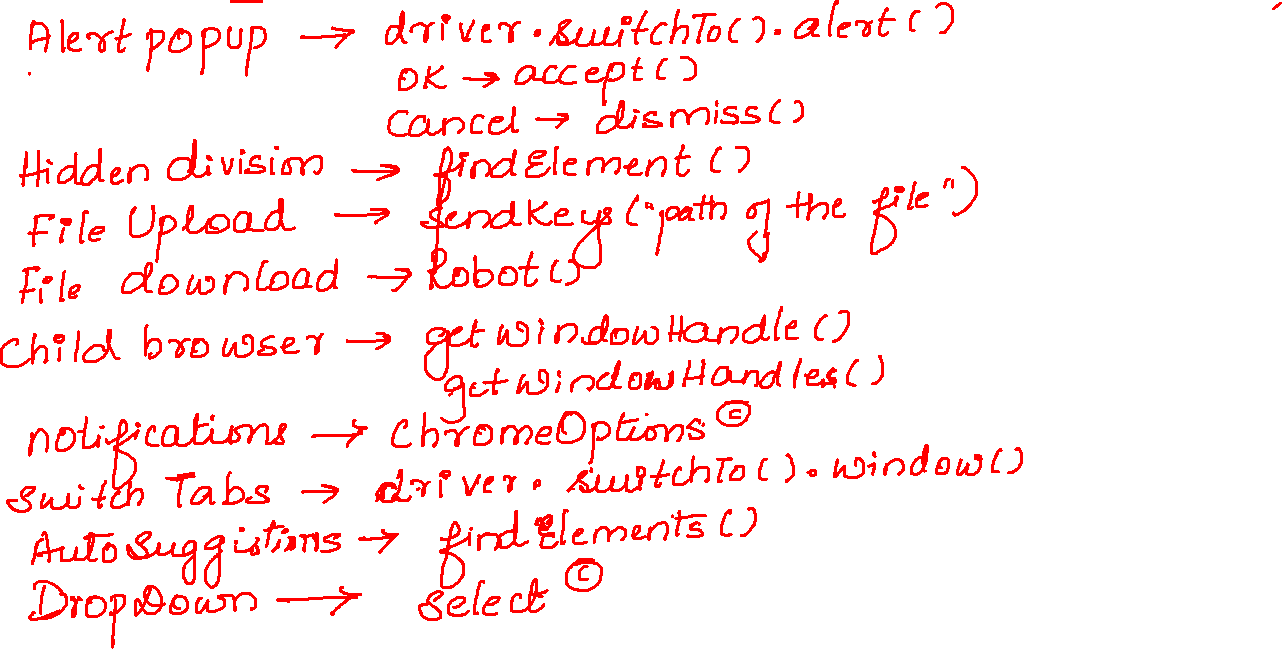 Alert popup → driver.switchTo().alert()
OK → accept()
Cancel → dismiss()
Hidden division → findElement()
File Upload → sendKeys("path of the file")
File download → Robot()
Child browser → getWindowHandle()
getWindowHandles()
notifications → ChromeOptions ©
Switch Tabs → driver.switchTo().window()
AutoSuggistions → findElements()
DropDown → Select ©